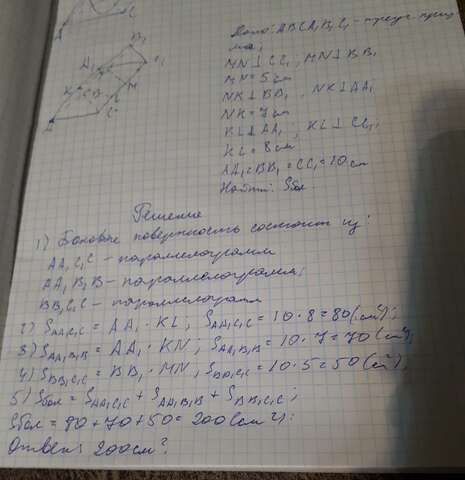 A C
B₁
A₁ C₁
K B M
L
A C
Дано: ABCA₁B₁C₁ - треуг. приз
ма;
MN⊥CC₁; MN⊥BB₁
MN=5см
NK⊥BB₁; NK⊥AA₁
NK=7см
KL⊥AA₁; KL⊥CC₁;
KL=8см
AA₁=BB₁=CC₁=10см
Найти: Sбок
Решение
1) Боковые поверхность состоит из:
AA₁C₁C - параллелограмм
AA₁B₁B - параллелограмм;
BB₁C₁C - параллелограмм
2) SAA₁C₁C = AA₁ · KL; SAA₁C₁C = 10·8=80(см²);
3) SAA₁B₁B = AA₁ · KN; SAA₁B₁B = 10·7=70(см²);
4) SBB₁C₁C = BB₁ · MN; SBB₁C₁C = 10·5=50(см²);
5) Sбок = SAA₁C₁C + SAA₁B₁B + SBB₁C₁C;
Sбок = 80+70+50=200(см²);
Ответ: 200см²